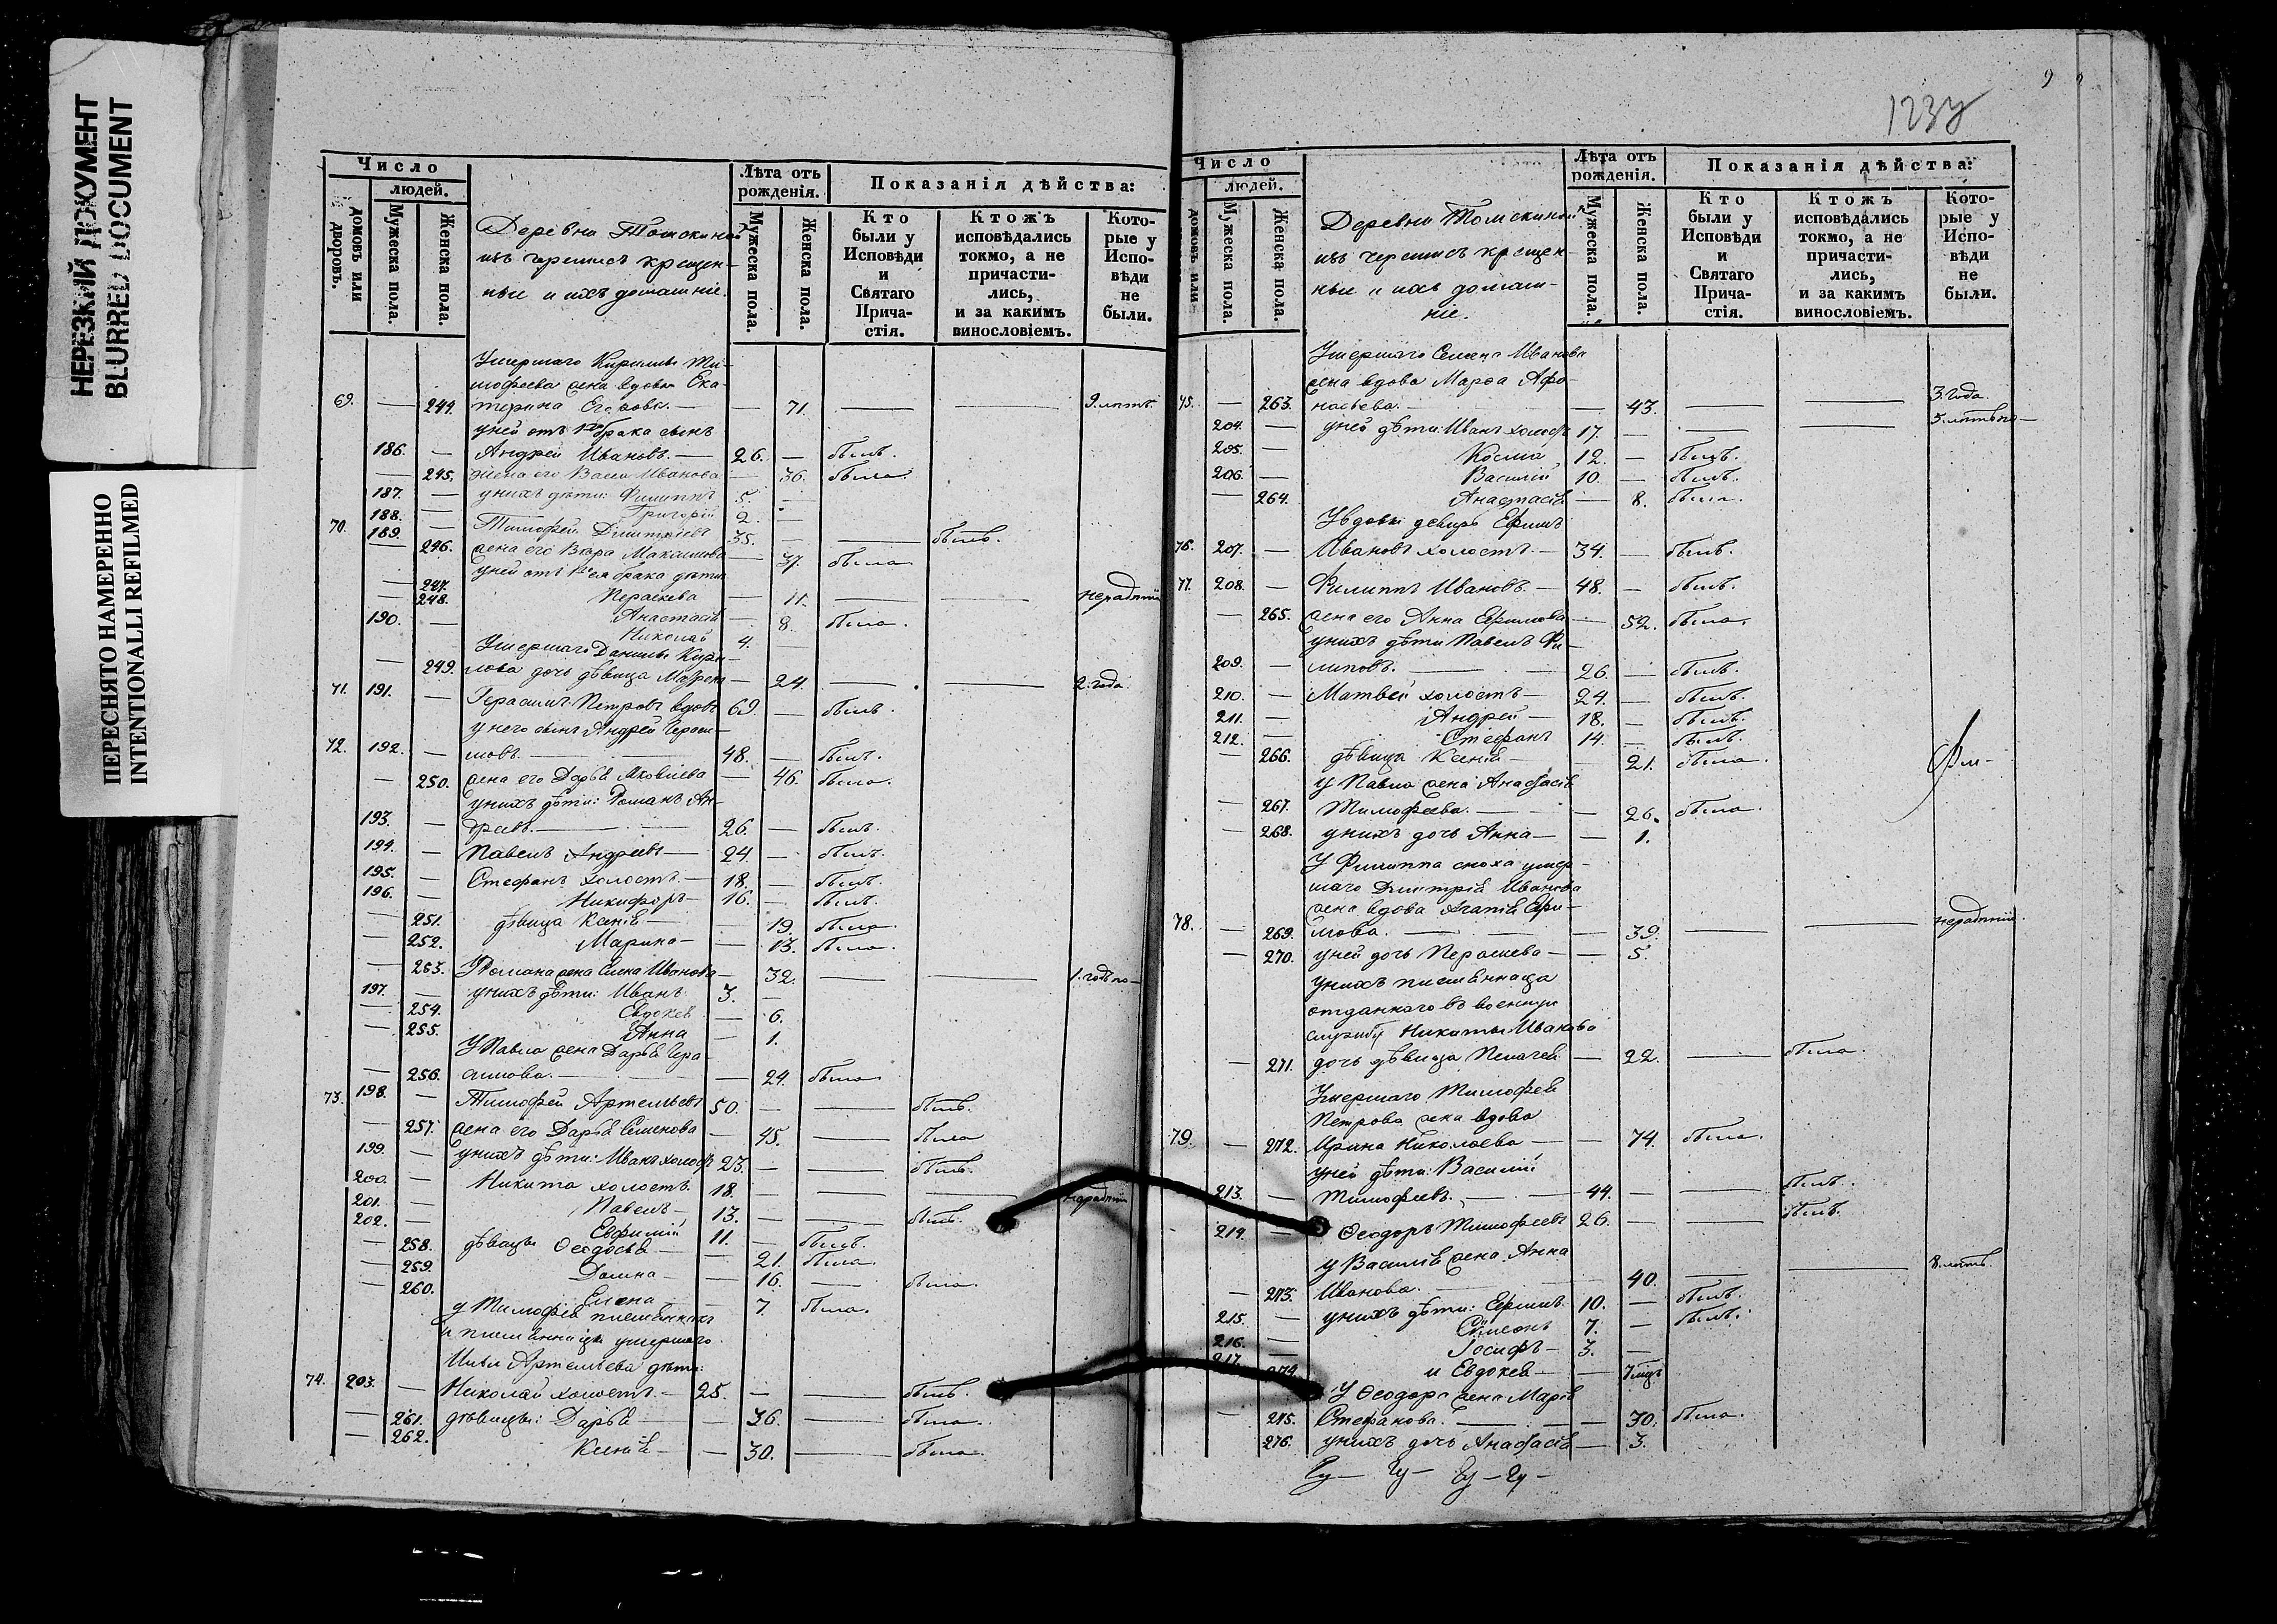 НЕРЕЗКИЙ ДОКУМЕНТ
BLURRED DOCUMENT
ПЕРЕСНЯТО НАМЕРЕННО
INTENTIONALLI REFILMED
Число
людей.
домовъ или дворовъ.
Мужеска пола.
Женска пола.
Деревни Томскиной
изъ черемисъ крещен-
ные и ихъ домашніе.
Лѣта отъ рожденія.
Мужеска пола.
Женска пола.
Показанія дѣйства:
Кто были у Исповѣди и Святаго Прича-стія.
Ктожъ исповѣдались токмо, а не причасти-лись, и за какимъ винословіемъ.
Кото-рые у Испо-вѣди не были.
Умершаго Кирилы Ти-
мофеева жена вдова Ека-
69. — 244. терина Егорова. — — 71. — — 9. лѣтъ.
у ней отъ 1го брака сынъ
186. — Андрей Ивановъ. — 26. — былъ.
— 245. жена его Васса Иванова — 36. была
187. — у нихъ дѣти: Филиппъ 5. —
188. — Григорій 2. —
70. 189. — Тимофей Дмитріевъ 35. — — былъ.
— 246. жена его Вѣра Максимова — 37. была
у ней отъ 1го брака дѣти
— 247. Параскева — 11. — — нерадѣнію
— 248. Анастасія — 8. была.
190. — Николай 4. —
Умершаго Данилы Кири-
— 249. лова дочь дѣвица Маѳрена — 24. — — 2. года.
71. 191. — Герасимъ Петровъ вдовъ 69. — былъ
у него сынъ Андрей Гераси-
72. 192. — мовъ. — 48. — былъ.
— 250. жена его Дарья Яковлева — 46. была.
у нихъ дѣти: Романъ Ан-
193. — дреевъ. — 26. — былъ.
194. — Павелъ Андреевъ — 24. — былъ.
195. — Стефанъ холостъ. — 18. — былъ.
196. — Никифоръ — 16. — былъ.
— 251. дѣвица Ксенія — — 19. была.
— 252. Марина — — 13. была.
— 253. У Романа жена Елена Иванова — 32. — — 1. годъ по —
197. — у нихъ дѣти: Иванъ 3. —
— 254. Евдокія — 6.
— 255. Анна — 1.
У Павла жена Дарья Гера-
— 256. симова. — — 24. была
73. 198. — Тимофей Артемьевъ 50. — — былъ.
— 257. жена его Дарья Семенова — 45. — была
199. — у нихъ дѣти: Иванъ холостъ 23. — — былъ.
200. — Никита холостъ. 18. — — — нерадѣнію
201. — Павелъ — 13. — — былъ.
202. — Евфимій 11. — былъ.
— 258. дѣвицы Ѳеодосія — — 21. была
— 259. Домна — — 16. — была.
— 260. Елена — 7. была.
у Тимофея племянникъ
и племянницы умершаго
Ильи Артемьева дѣти:
74. 203. — Николай холостъ. — 25. — — былъ.
— 261. дѣвицы: Дарья — 36. — была.
— 262. Ксенія — — 30. — была.
1237
9
Число
людей.
домовъ или
Мужеска пола.
Женска пола.
Деревни Томскиной
изъ черемисъ крещен-
ные и ихъ домаш-
ніе.
Лѣта отъ рожденія.
Мужеска пола.
Женска пола.
Показанія дѣйства:
Кто были у Исповѣди и Святаго Прича-стія.
Ктожъ исповѣдались токмо, а не причасти-лись, и за какимъ винословіемъ.
Кото-рые у Испо-вѣди не были.
Умершаго Семена Иванова
жена вдова Марѳа Афо-
75. — 263. насьева. — — 43. — — 3. года.
204. — у ней дѣти: Иванъ холостъ 17. — — — 3. лѣтъ по —
205. — Косма 12. — былъ.
206. — Василій 10. — былъ.
— 264. Анастасія — 8. была.
У вдовы деверь Ефимъ
76. 207. — Ивановъ холостъ. — 34. — былъ.
77. 208. — Филиппъ Ивановъ. — 48. — былъ.
— 265. жена его Анна Ефимова — 52. была.
у нихъ дѣти Павелъ Фи-
209. — липовъ. — 26. — былъ.
210. — Матвей холостъ — 24. — былъ.
211. — Андрей — 18. — былъ.
212. — Стефанъ 14. — былъ.
— 266. дѣвица Ксенія — 21. была.
у Павла жена Анастасія
— 267. Тимофеева. — — 26. была.
— 268. у нихъ дочь Анна — — 1.
У Филиппа сноха умер-
шаго Дмитрія Иванова
жена вдова Агапія Ефи-
78. — 269. мова. — — 39. — — нерадѣнію.
— 270. у ней дочь Параскева — — 5.
у нихъ племянница
отданнаго въ военную
службу Никиты Иванова
— 271. дочь дѣвица Пелагея — 22. — была.
Умершаго Тимофея
Петрова жена вдова
79. — 272. Ирина Николаева — — 74. была.
у ней дѣти: Василій
213. — Тимофеевъ. — 44. — — былъ.
214. — Ѳеодоръ Тимофеевъ 26. — — былъ.
у Василія жена Анна
— 273. Иванова. — 40. — — 8. лѣтъ.
215. — у нихъ дѣти: Ефимъ 10. — былъ.
216. — Симеонъ 7. — былъ.
217. — Іосифъ — 3. —
274. и Евдокея — — 7 мцъ
У Ѳеодора жена Марія
— 275. Стефанова. — — 30. была.
276. у нихъ дочь Анастасія — 3.